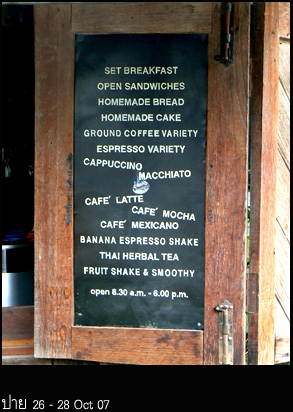 SET BREAKFAST
OPEN SANDWICHES
HOMEMADE BREAD
HOMEMADE CAKE
GROUND COFFEE VARIETY
ESPRESSO VARIETY
CAPPUCCINO
MACCHIATO
CAFE´ LATTE
CAFE´ MOCHA
CAFE´ MEXICANO
BANANA ESPRESSO SHAKE
THAI HERBAL TEA
FRUIT SHAKE & SMOOTHY
open 8.30 a.m. - 6.00 p.m.
ปาย 26 - 28 Oct 07